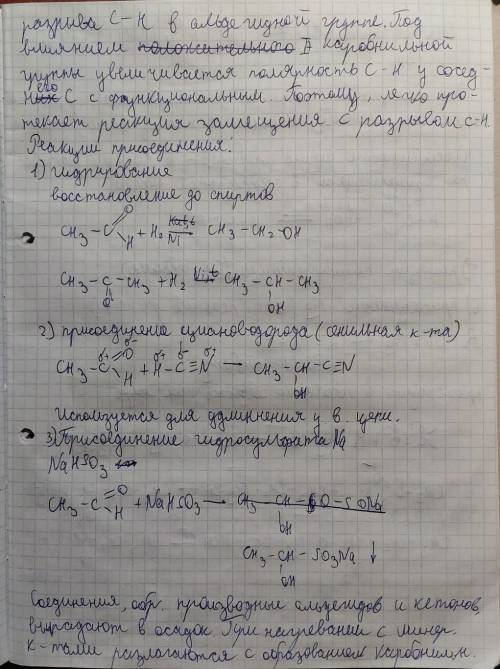 разрыва C-H в альдегидной группе. Под
влиянием II карбонильной
группы увеличивается полярность C-H у сосед-
него C с функциональным. Поэтому, легко про-
текает реакция замещения с разрывом C-H.
Реакции присоединения.
1) гидрирование
восстановление до спиртов
CH3-C(=O)H + H2 →(Kat, t, Ni) CH3-CH2-OH
CH3-C(=O)-CH3 + H2 →(Ni, t) CH3-CH(OH)-CH3
2) присоединение циановодорода (синильная к-та)
CH3-C(=O)H + H-C≡N → CH3-CH(OH)-C≡N
Используется для удлиннения у в. цепи.
3) Присоединение гидросульфата Na
NaHSO3
CH3-C(=O)H + NaHSO3 →
CH3-CH(OH)-SO3Na ↓
Соединения, обр. производные альдегидов и кетонов,
выпадают в осадок. При нагревании с минер.
к-тами разлагаются с образованием карбонильн.